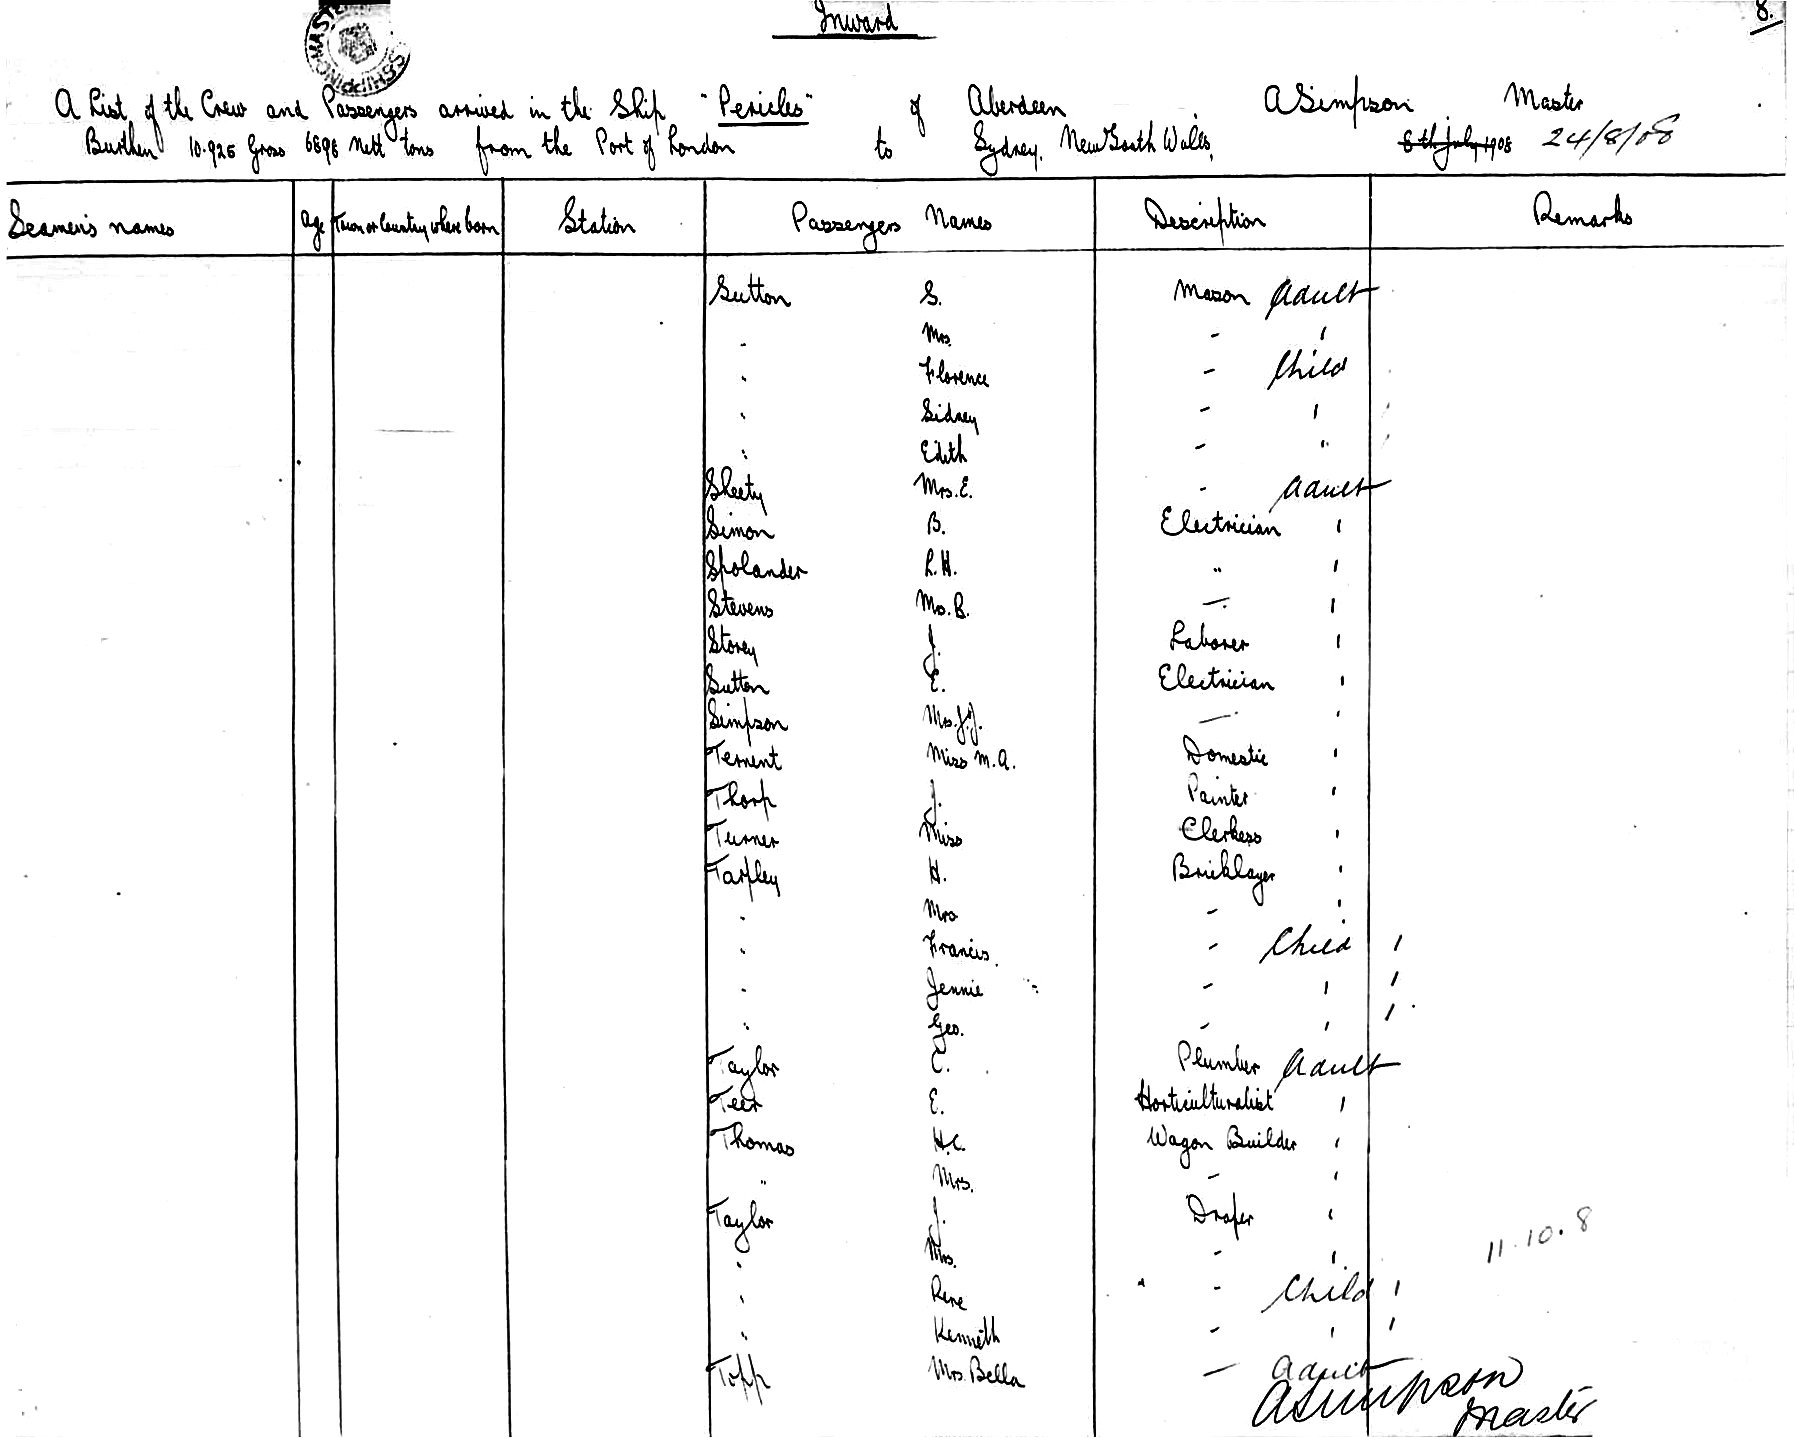 Inward
8.
SHIPPING MASTER
A List of the Crew and Passengers arrived in the Ship "Pericles" of Aberdeen A Simpson Master
Burthen 10.925 Gross 6898 Nett tons from the Port of London to Sydney, New South Wales, 8th July 1908 24/8/08
Seamen's names Age Town or Country where born Station Passengers Names Description Remarks
Sutton S. Mason Adult
" Mrs. - "
" Florence - Child
" Sidney - "
" Edith - "
Sheety Mrs. E. - Adult
Simon B. Electrician "
Spolander L.H. " "
Stevens Mrs. B. - "
Storey J. Laborer "
Sutton E. Electrician "
Simpson Mrs. J.J. - "
Ternent Miss M.A. Domestic "
Thorp J. Painter "
Turner Miss Clerkess "
Tarpley H. Bricklayer "
" Mrs - "
" Francis. - Child
" Jennie - "
" Geo. - "
Taylor Plumber Adult
Teer E. Horticulturalist "
Thomas H.C. Wagon Builder "
" Mrs. - "
Taylor J. Draper "
" Mrs. - "
11.10.8
" Rene - Child
" Kenneth - "
Topp Mrs. Bella - Adult
A Simpson
Master